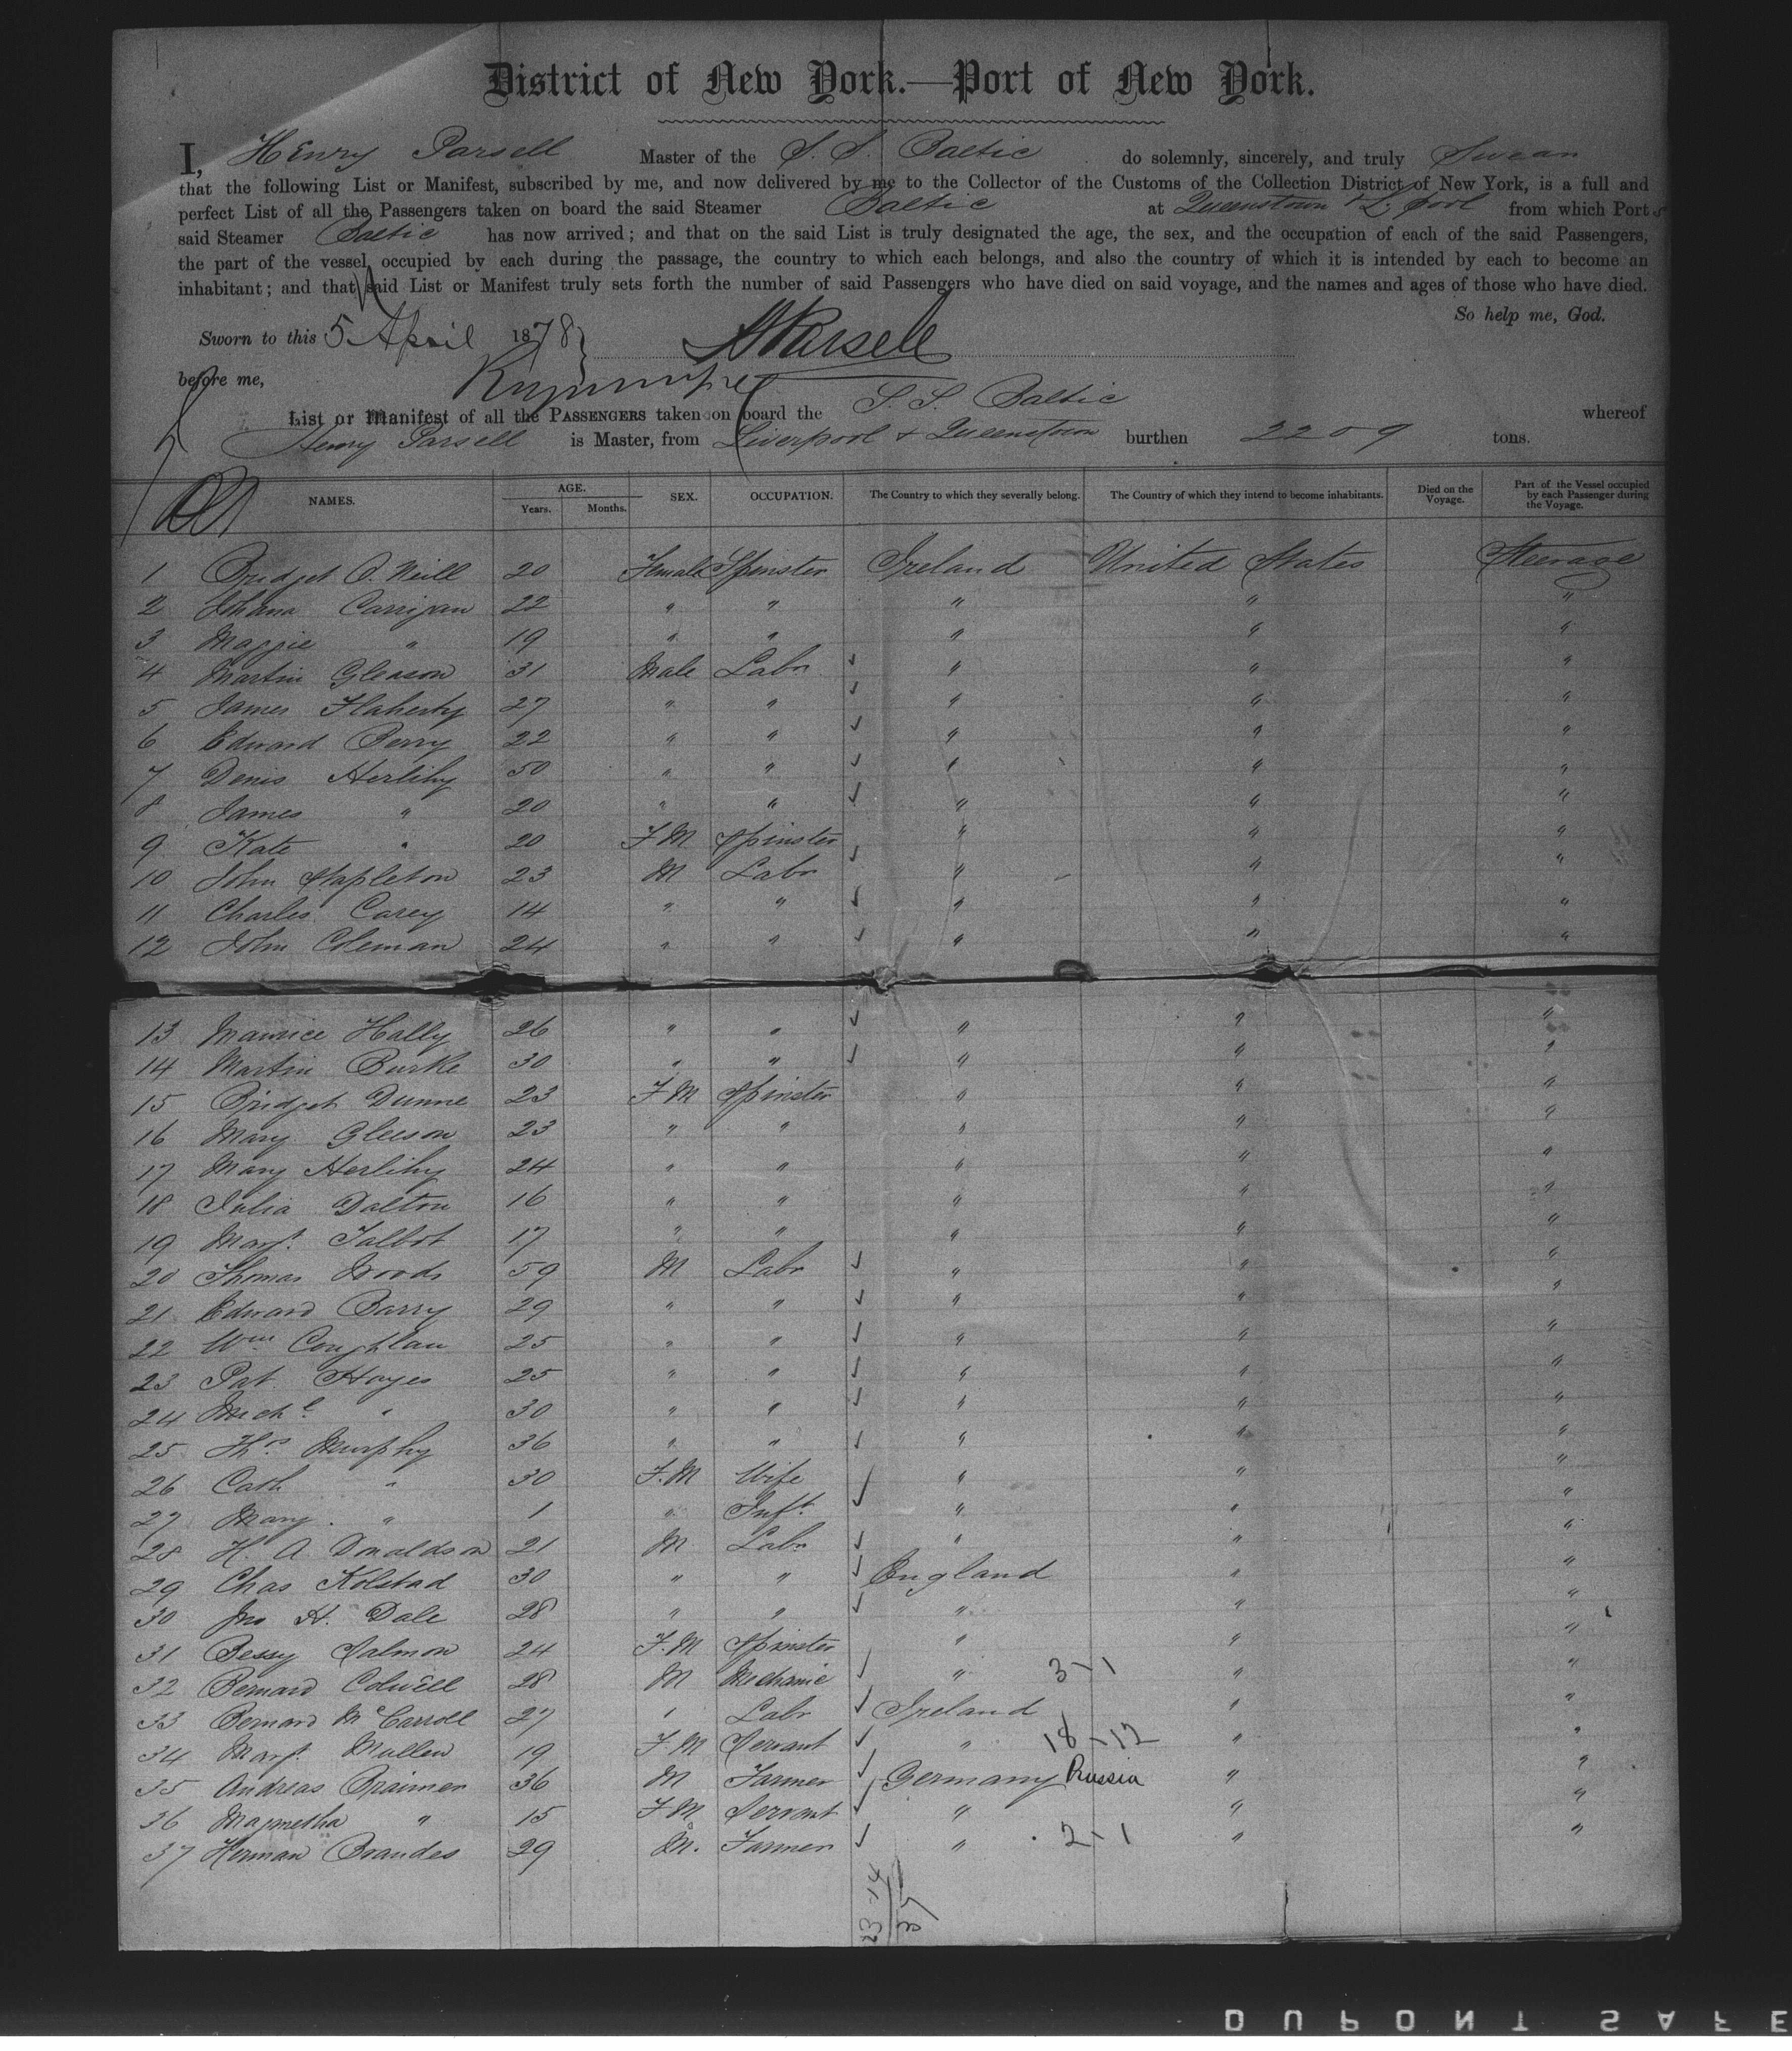 District of New York.—Port of New York.
I, Henry Parsell Master of the S. S. Baltic do solemnly, sincerely, and truly Swear
that the following List or Manifest, subscribed by me, and now delivered by me to the Collector of the Customs of the Collection District of New York, is a full and
perfect List of all the Passengers taken on board the said Steamer Baltic at Queenstown & L'pool from which Ports
said Steamer Baltic has now arrived; and that on the said List is truly designated the age, the sex, and the occupation of each of the said Passengers,
the part of the vessel occupied by each during the passage, the country to which each belongs, and also the country of which it is intended by each to become an
inhabitant; and that said List or Manifest truly sets forth the number of said Passengers who have died on said voyage, and the names and ages of those who have died.
So help me, God.
Sworn to this 5 April 1878 H Parsell
before me,
List or Manifest of all the PASSENGERS taken on board the S. S. Baltic whereof
Henry Parsell is Master, from Liverpool & Queenstown burthen 2209 tons.
NAMES. AGE. Years. Months. SEX. OCCUPATION. The Country to which they severally belong. The Country of which they intend to become inhabitants. Died on the Voyage. Part of the Vessel occupied by each Passenger during the Voyage.
1 Bridget O. Neill 20 Female Spinster Ireland United States Steerage
2 Johana Carrigan 22 " " " " "
3 Maggie " 19 " " " " "
4 Martin Gleason 31 Male Labr ✓ " " "
5 James Flaherty 27 " " ✓ " " "
6 Edward Perry 22 " " ✓ " " "
7 Denis Herlihy 50 " " ✓ " " "
8 James " 20 " " ✓ " " "
9 Kate " 20 F M Spinster " " "
10 John Stapleton 23 M Labr ✓ " " "
11 Charles Carey 14 " " ✓ " " "
12 John Coleman 24 " " ✓ " " "
13 Maurice Hally 26 " " ✓ " " "
14 Martin Burke 30 " " ✓ " " "
15 Bridget Dunne 23 F M Spinster " " "
16 Mary Gleeson 23 " " " " "
17 Mary Herlihy 24 " " " " "
18 Julia Dalton 16 " " " " "
19 Margt. Talbot 17 " " " " "
20 Thomas Woods 59 M Labr ✓ " " "
21 Edward Barry 29 " " ✓ " " "
22 Wm Coughlan 25 " " ✓ " " "
23 Pat Hayes 25 " " ✓ " " "
24 Michl " 30 " " ✓ " " "
25 Ths Murphy 36 " " ✓ " " "
26 Cath " 30 F. M Wife ✓ " " "
27 Mary " 1 " Inft. ✓ " " "
28 H. A. Donaldson 21 M Labr ✓ " " "
29 Chas Kolstad 30 " " ✓ England " "
30 Jno H. Dale 28 " " ✓ " " "
31 Bessy Salmon 24 F. M Spinster " " "
32 Bernard Colwell 28 M Mechanic ✓ " 3-1 " "
33 Bernard McCarroll 27 " Labr ✓ Ireland " "
34 Margt. Mullen 19 F. M Servant ✓ " 18-12 " "
35 Andreas Braimer 36 M Farmer ✓ Germany Russia " "
36 " 15 F. M Servant ✓ " " "
37 Herman Brandes 29 M. Farmer ✓ " 2-1 " "
23-14
37
DUPONT SAFE